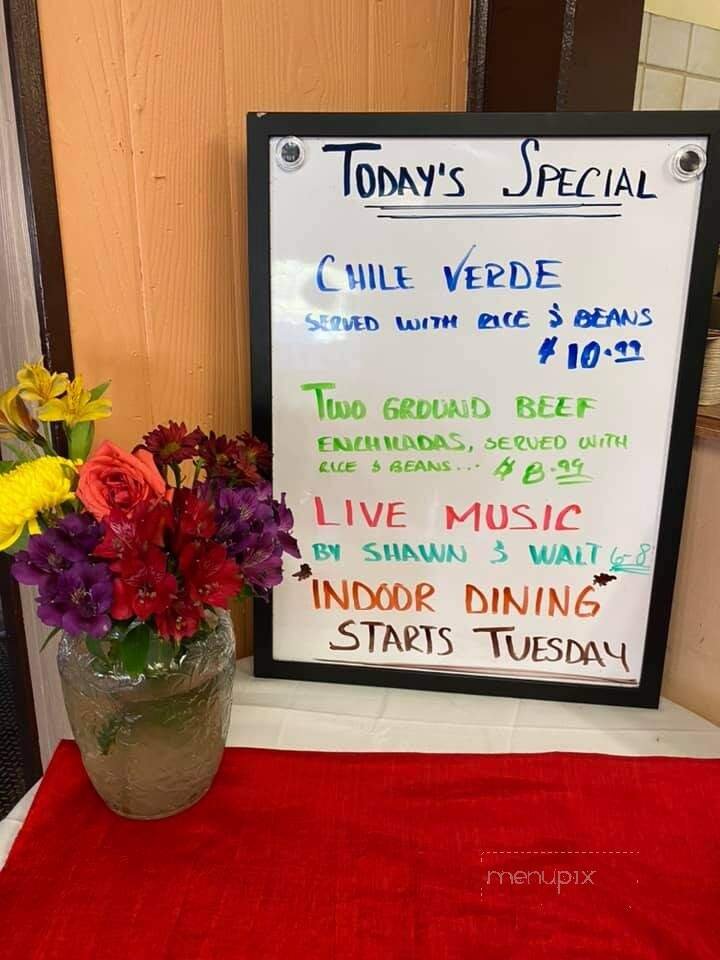 TODAY'S SPECIAL
CHILE VERDE
SERVED WITH RICE & BEANS
$ 10.99
TWO GROUND BEEF
ENCHILADAS, SERVED WITH
RICE & BEANS... $ 8.99
LIVE MUSIC
BY SHAWN & WALT 6-8
"INDOOR DINING"
STARTS TUESDAY
menupix